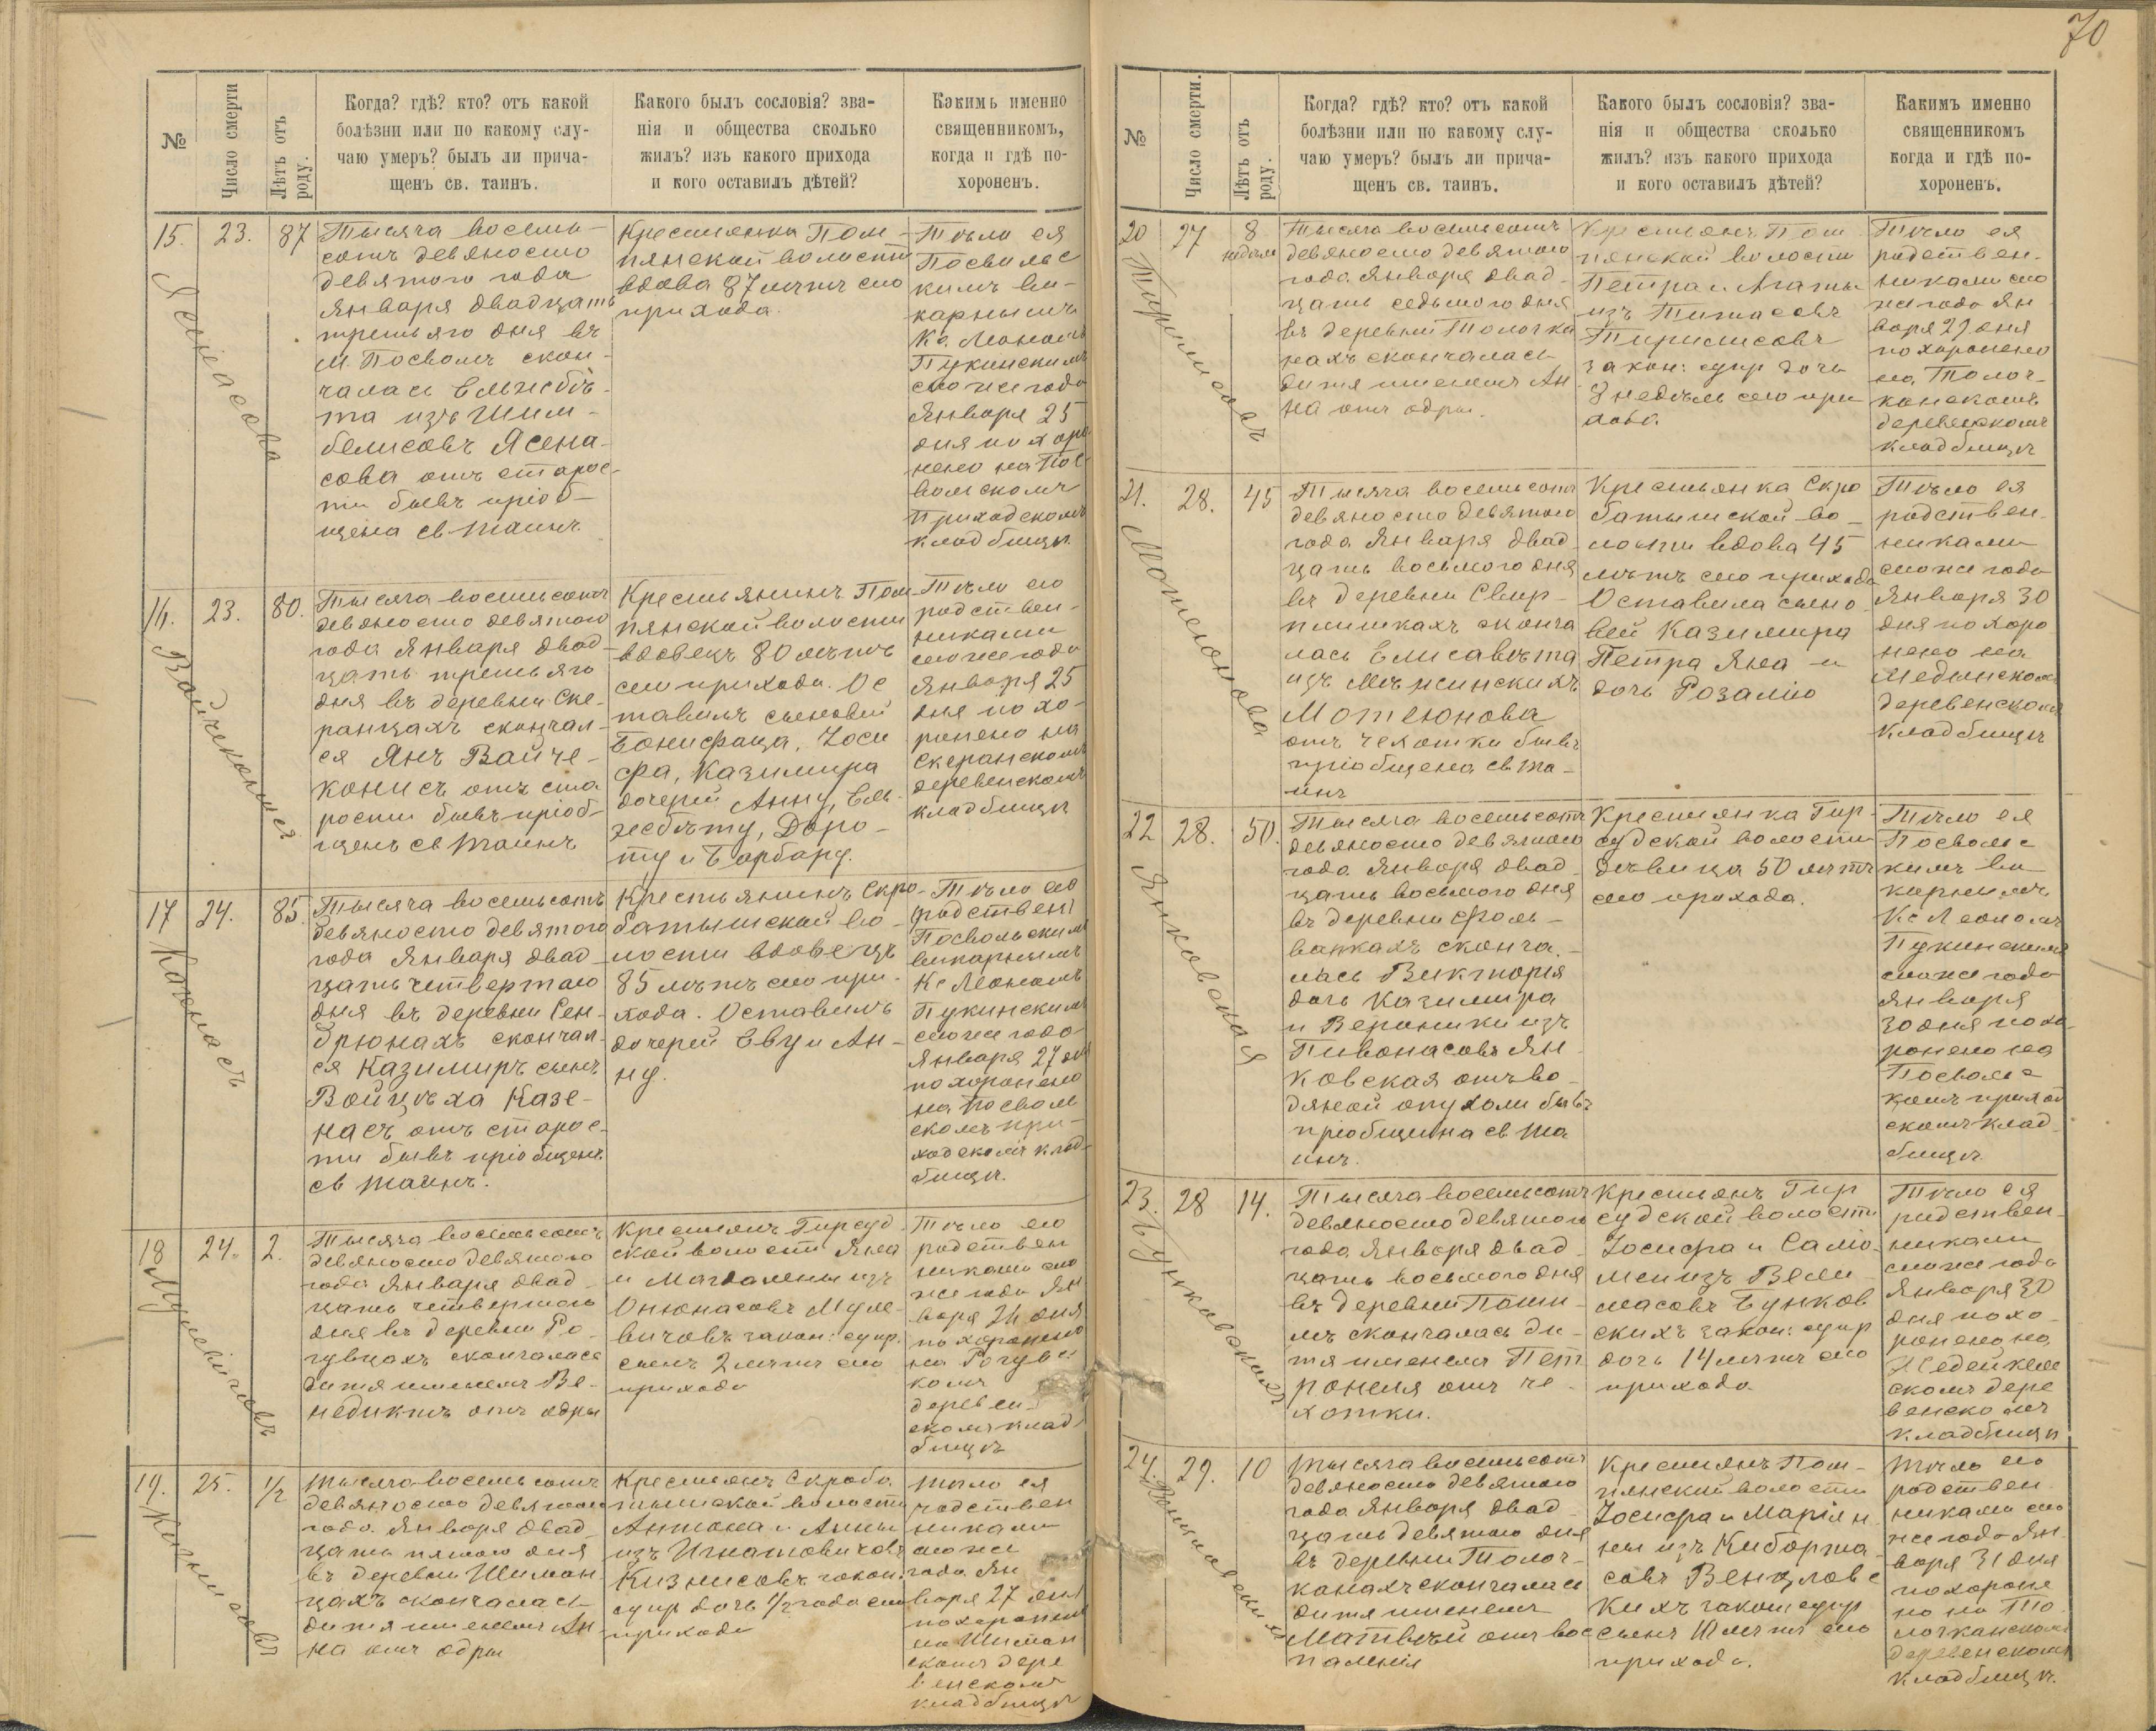 70
№
Число смерти
Лѣтъ отъ роду.
Когда? гдѣ? кто? отъ какой
болѣзни или по какому слу-
чаю умеръ? былъ ли прича-
щенъ св. таинъ.
Какого былъ сословія? зва-
нія и общества сколько
жилъ? изъ какого прихода
и кого оставилъ дѣтей?
Какимъ именно
священникомъ,
когда и гдѣ по-
хороненъ.
15.
23.
87
Тысяча восемь-
сотъ девяносто
девятого года
Января двадцать
третьяго дня въ
м. Посволѣ скон-
чалась Ельжбѣ-
та изъ Шим-
белисовъ Ясена-
сова отъ старос-
ти бывъ пріоб-
щена св таинъ
Крестьянка Пом-
пянской волости
вдова 87 лѣтъ сего
прихода.
Тѣло ея
Посвольс
кимъ ви-
карнымъ
Кс. Леономъ
Пукинскимъ
сего же года
Января 25
дня похоро
нено на Пос
вольскомъ
Приходскомъ
кладбищѣ
16.
23.
80.
Войчеконисъ
Тысяча восемьсотъ
девяносто девятого
года Января двад-
цать третьяго
дня въ деревни Ске-
ранцахъ скончал-
ся Янъ Войче-
конисъ отъ ста
рости бывъ пріоб-
щенъ св Таинъ
Крестьянинъ Пом-
пянской волости
вдовецъ 80 лѣтъ
сего прихода. Ос
тавилъ сыновей
Бонифаца, Іоси
фа, Казимира
дочерей Анну, Ель-
жбѣту, Доро-
ту и Барбару.
Тѣло его
родствен-
никами
сего же года
Января 25
дня похо-
ронено на
Скеранскомъ
деревенскомъ
кладбищѣ
17
24.
85.
Казенасъ
Тысяча восемьсотъ
девяносто девятого
года Января двад-
цать четвертого
дня въ деревни Сен-
дрюнахъ скончал-
ся Казимиръ сынъ
Войцѣха Казе-
насъ отъ старос-
ти бывъ пріобщенъ
св таинъ.
Крестьянинъ Скро-
батышской во-
лости вдовецъ
85 лѣтъ сего при-
хода. Оставилъ
дочерей Еву и Ан-
ну.
Тѣло его
(родствен)
Посвольскимъ
викарнымъ
Кс Леономъ
Пукинскимъ
сего же года
Января 27 дня
похоронено
на Посволь
скомъ при-
ходскомъ клад-
бищѣ.
18
24.
2.
Тысяча восемьсотъ
девяносто девятого
года Января двад-
цать четвертого
дня въ деревни Ро-
гувцахъ скончалось
дитя именемъ Ве-
недиктъ отъ одры
Крестьянъ Гирсуд-
ской волости Яна
и Магдалены изъ
Онюнасовъ Муле-
вичовъ закон: супр.
сынъ 2 лѣтъ сего
прихода
Тѣло его
родствен
никами сего
же года Ян
варя 26 дня
похоронено
на Рогувс
комъ
деревен-
скомъ клад
бищѣ
19.
25.
1/2
Тысяча восемьсотъ
девяносто девятого
года Января двад-
цать пятого дня
въ деревни Шиман
цахъ скончалась
дитя именемъ Ан
на отъ одры
Крестьянъ Скроба
тышской волости
Антона и Анны
изъ Игнатовичовъ
Кизнисовъ закон:
супр дочь 1/2 года сего
прихода
Тѣло ея
родствен
никами
сего же
года Ян
варя 27 дня
похоронено
на Шиман
скомъ дере
венскомъ
кладбищѣ
№
Число смерти.
Лѣтъ отъ роду.
Когда? гдѣ? кто? отъ какой
болѣзни или по какому слу-
чаю умеръ? былъ ли прича-
щенъ св. таинъ.
Какого былъ сословія? зва-
нія и общества сколько
жилъ? изъ какого прихода
и кого оставилъ дѣтей?
Какимъ именно
священникомъ
когда и гдѣ по-
хороненъ.
20
27
8
недѣль
Тысяча восемьсотъ
девяносто девятого
года Января двад-
цать седьмого дня
въ деревни Толочка
нахъ скончалась
дитя именемъ Ан
на отъ одры.
Крестьянъ Пом
пянской волости
Петра и Агаты
изъ
закон: супр дочь
8 недѣль сего при
хода.
Тѣло ея
родствен-
никами сего
же года Ян
варя 29 дня
похоронено
на Толоч-
канскомъ
деревенскомъ
кладбищѣ
21.
28.
45
Мотеюнова
Тысяча восемьсотъ
девяносто девятого
года Января двад
цать восьмого дня
въ деревни Свир-
плишкахъ сконча
лась Елисавѣта
изъ
Мотеюнова
отъ чехотки бывъ
пріобщена св та-
инъ
Крестьянка Скро
батышской во-
лости вдова 45
лѣтъ сего прихода
Оставила сыно-
вей Казимира
Петра Яна и
дочь Розалію
Тѣло ея
родствен-
никами
сего же года
Января 30
дня похоро
нено на
деревенскомъ
кладбищѣ
22
28.
50.
Янковская
Тысяча восемьсотъ
девяносто девятого
года Января двад
цать восьмого дня
въ деревни Фоль-
варкахъ сконча-
лась Викторія
дочь Казимира
и Вероники изъ
Пивонасовъ Ян
ковская отъ во-
дяной опухоли бывъ
пріобщена св та
инъ.
Крестьянка Гир-
судской волости
дѣвица 50 лѣтъ
сего прихода.
Тѣло ея
Посвольс
кимъ ви
карнымъ
Кс Леономъ
Пукинскимъ
сего же года
Января
30 дня похо
ронено на
Посвольс
комъ приход
скомъ клад
бищѣ
23.
28
14.
Тысяча восемьсотъ
девяносто девятого
года Января двад-
цать восьмого дня
въ деревни
скончалась ди-
тя именемъ Пет
ронеля отъ че-
хотки.
Крестьянъ Гир
судской волости
Іосифа и Сало-
меи изъ
Бунков
скихъ закон: супр
дочь 14 лѣтъ сего
прихода
Тѣло ея
родствен-
никами
сего же года
Января 30
дня похо
ронено на
скомъ дере
венскомъ
кладбищѣ
24.
29.
10
Тысяча восемьсотъ
девяносто девятого
года Января двад
цать девятого дня
въ деревни Толоч-
канахъ скончалась
дитя именемъ
Матвѣй отъ вос
паленія
Крестьянъ Пом-
пянской волости
Іосифа и Маріян
ны изъ Киборта
совъ Венцловс
кихъ закон супр
сынъ лѣтъ сего
прихода.
Тѣло его
родствен
никами сего
же года Ян
варя 31 дня
похороне
но на То
лочканскомъ
деревенскомъ
кладбищѣ.